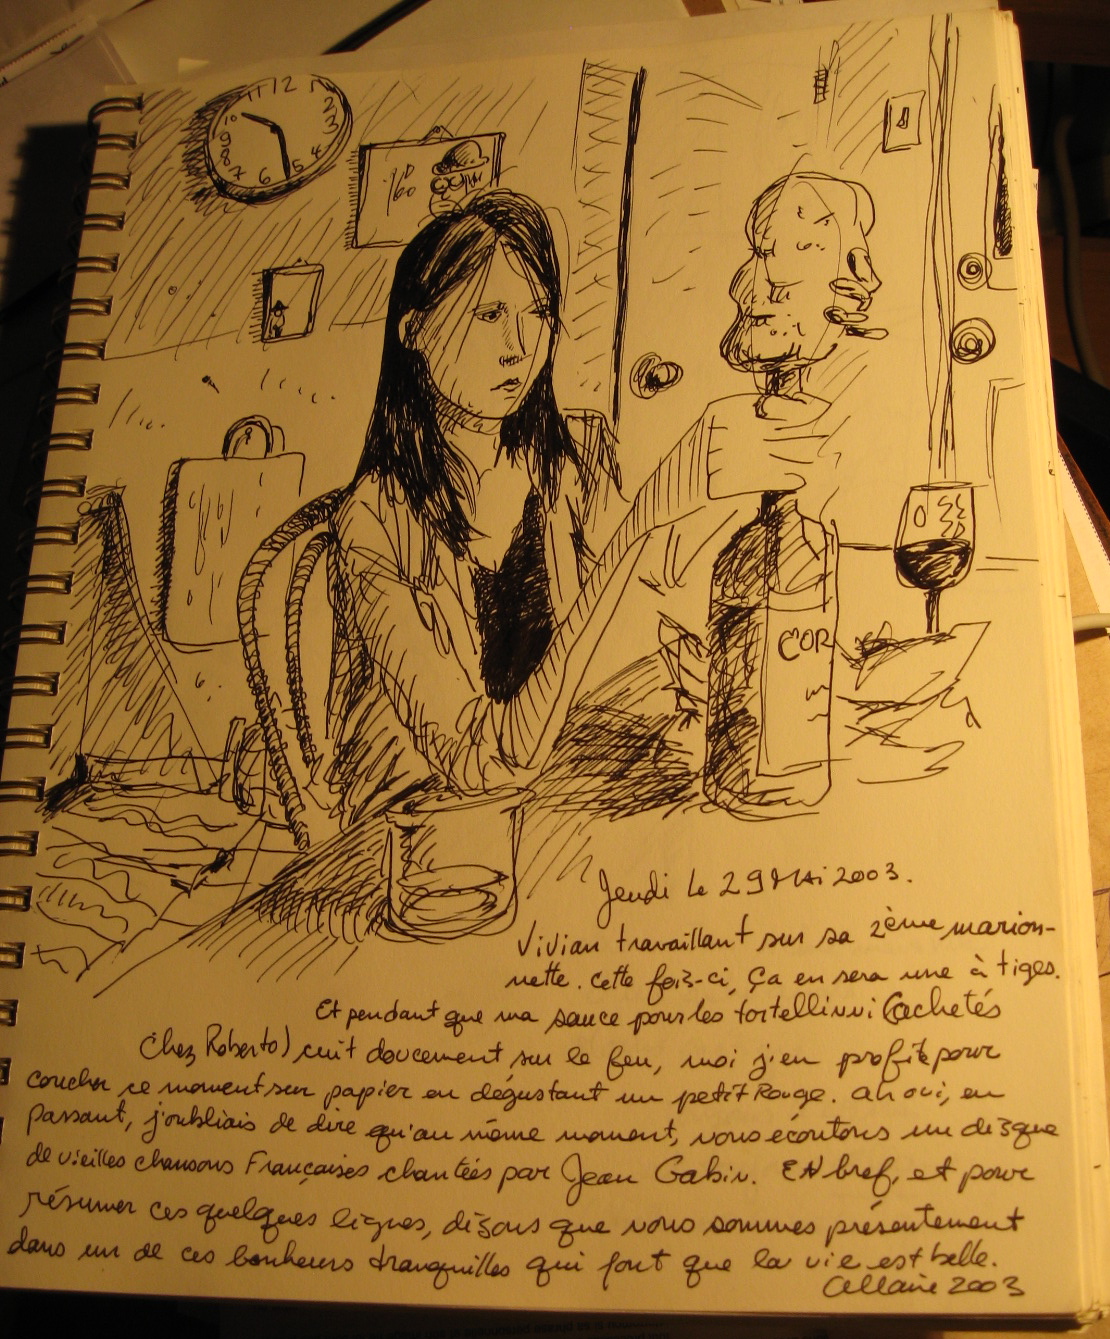 11 12 1 2 3 4 5 6 7 8 9 10
COR
Jeudi le 29 Mai 2003.
Vivian travaillant sur sa 2ème marion-
nette. Cette fois-ci, ça en sera une à tiges.
Et pendant que ma sauce pour les tortellinni (achetés
chez Roberto) cuit doucement sur le feu, moi j'en profite pour
coucher ce moment sur papier en dégustant un petit Rouge. Ah oui, en
passant, j'oubliais de dire qu'au même moment, nous écoutons un disque
de vieilles chansons Françaises chantées par Jean Gabin. EN bref, et pour
résumer ces quelques lignes, disons que nous sommes présentement
dans un de ces bonheurs tranquilles qui font que la vie est belle.
Allaire 2003